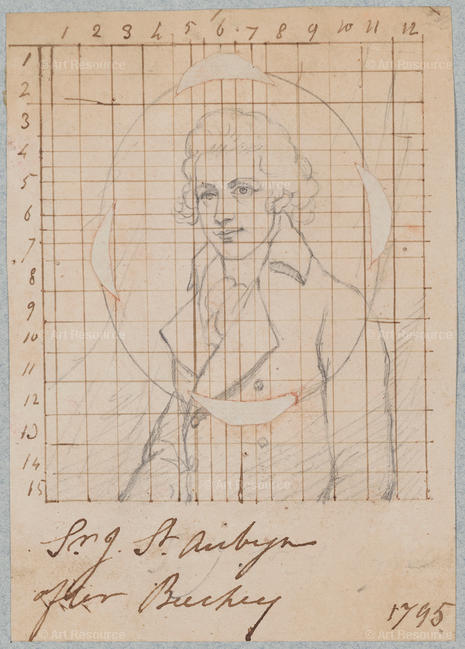 1 2 3 4 5 6 7 8 9 10 11 12
1
2
3
4
5
6
7
8
9
10
11
12
13
14
15
Sr J. St. Aubyn
after Beechey
1795
© Art Resource
© Art Resource
© Art Resource
© Art Resource
© Art Resource
© Art Resource
© Art Resource
© Art Resource
© Art Resource
© Art Resource